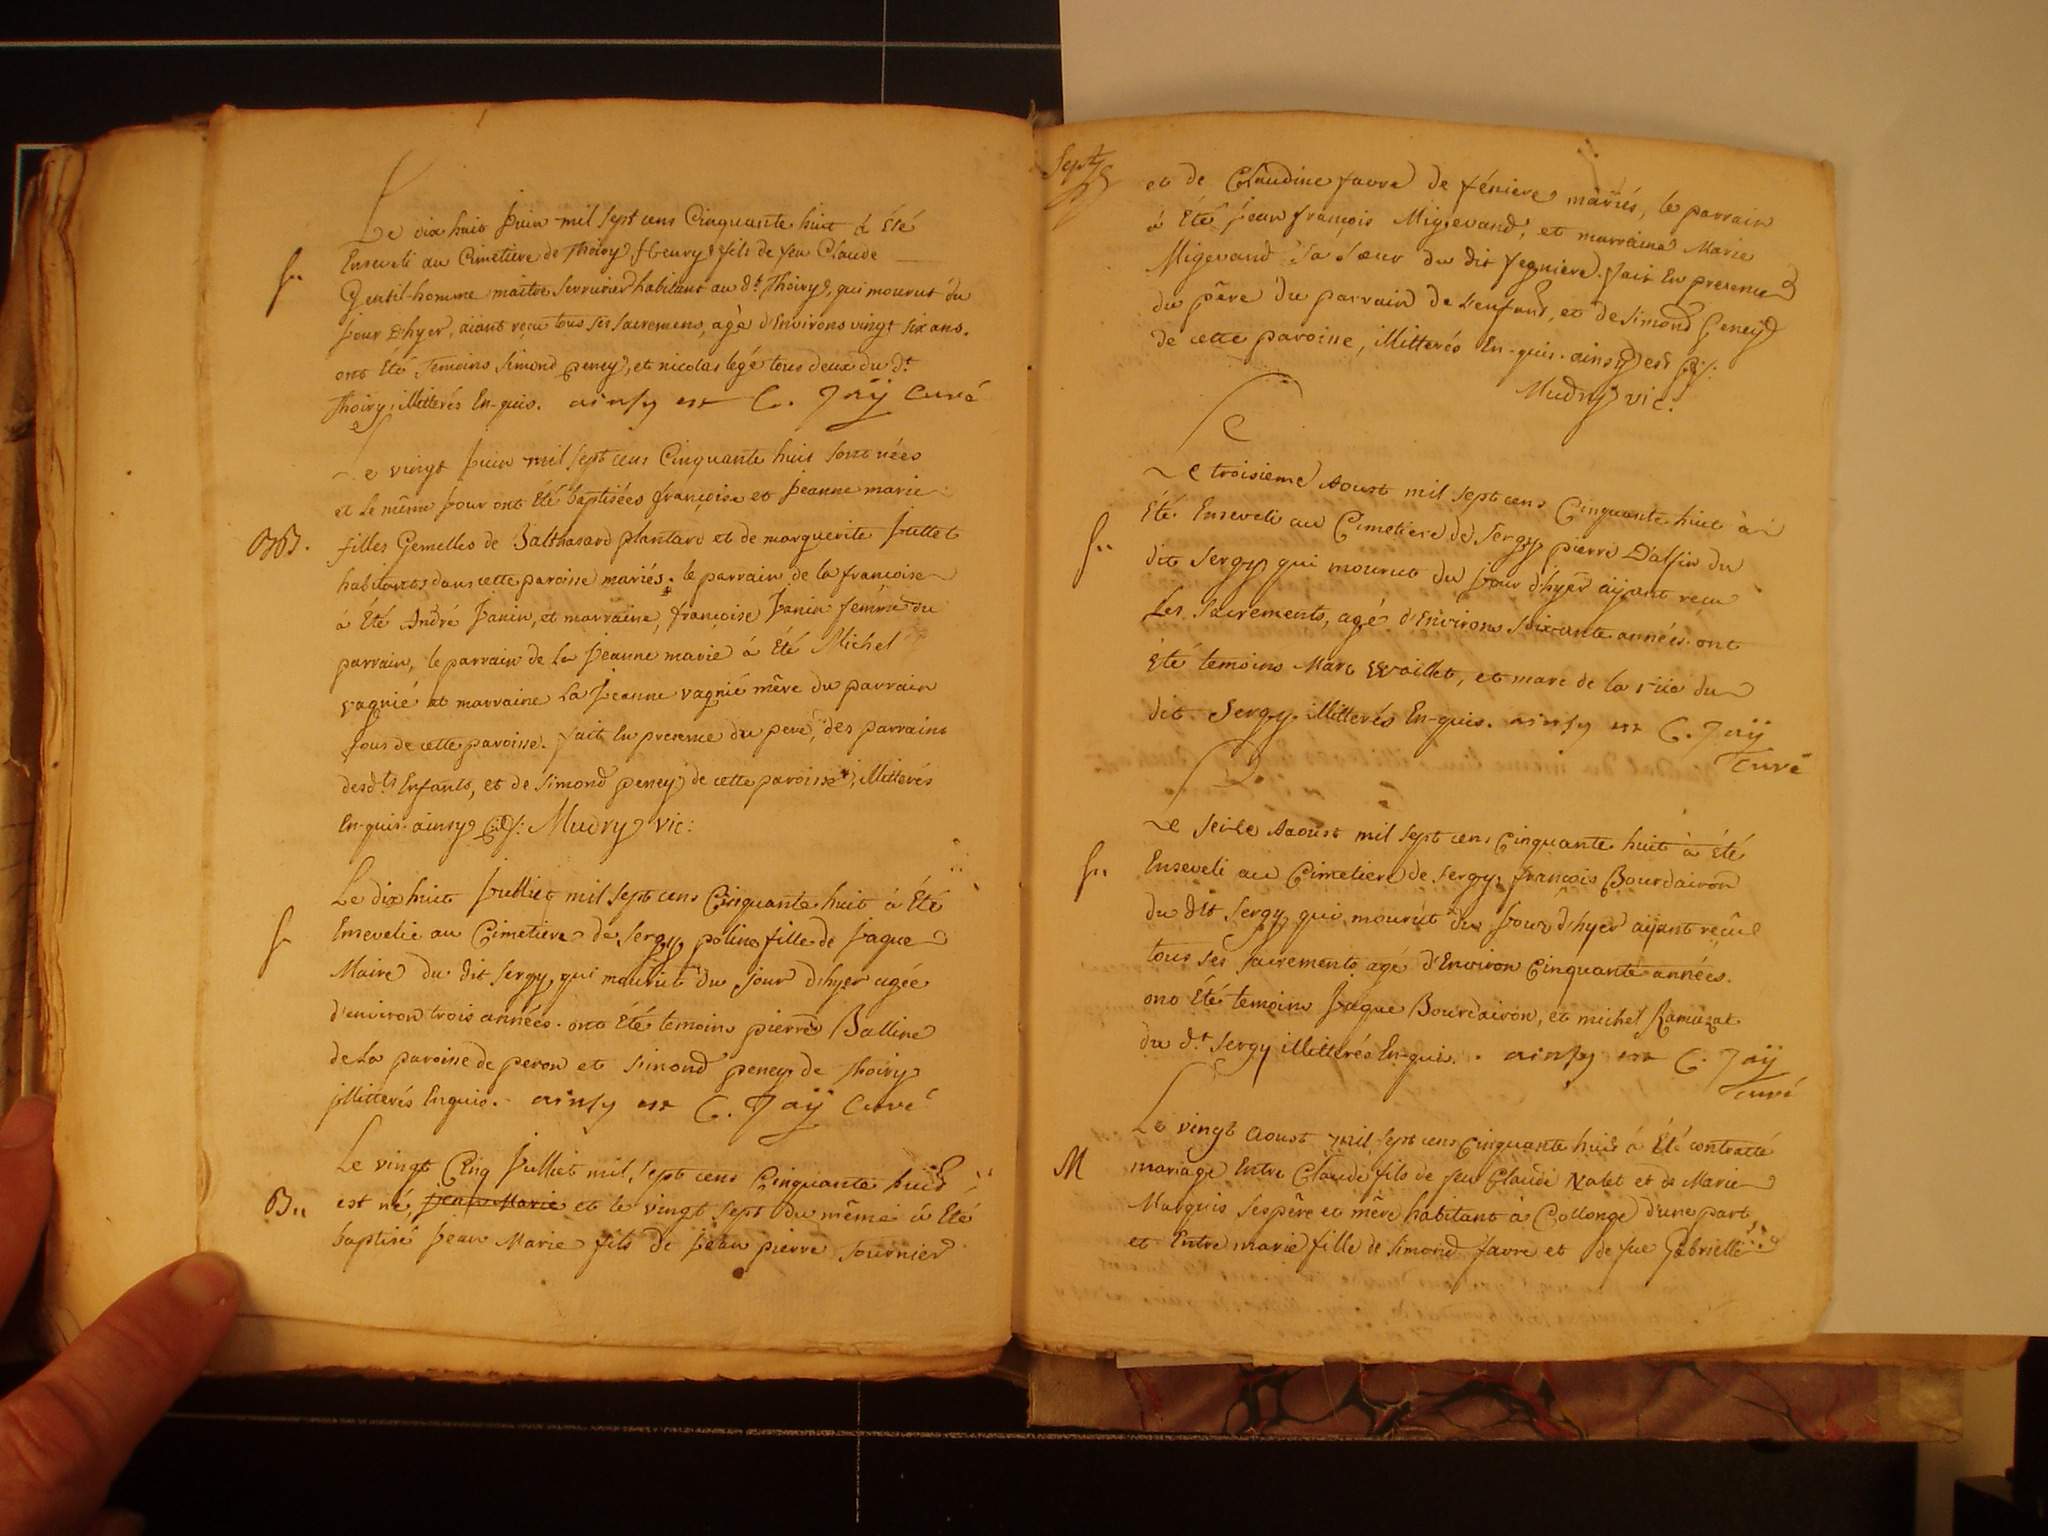 Le dix huit Juin mil sept cens Cinquante huit à Été
S..
Enseveli au Cimetiere de Thoiry Fleury fils de feu Claude
Gentil-homme maitre Serrurier habitant au d.t Thoiry, qui mourut du
Jour d'hyer, aiant reçu tous ses sacremens, agè d'Environs vingt six ans.
ont Été Temoins Simond peney, et nicolas legé tous deux du d.t
Thoiry, illitterés En-quis. ainsy est C. Jaÿ Curé
Le vingt Juin mil sept cens Cinquante huit sont nées
et le même Jour ont Été baptisées françoise et Jeanne marie
BB.
filles Gemelles de Balthasard plantard et de marguerite Jullet
habitants dans cette paroisse mariés. le parrain de la françoise
à Été André Janin, et marraine, françoise Janin femme du
parrain, le parrain de la Jeanne marie à Été Michel
vagnié et marraine La Jeanne vagnié mêre du parrain
Tous de cette paroisse. fait En presence du pere, des parrains
desd.ts Enfants, et de Simond peney de cette paroisse, illitterés
En-quis. ainsy Mudry vic:
Le dix huit Julliet mil sept cens Cinquante huit à Été
S
Ensevelie au Cimetiere de Sergy poline fille de Jaque
Maire du dit Sergy, qui mourut du Jour d'hyer agée
d'environ trois années. ont Été temoins pierre Balline
de La paroisse de peron et Simond peney de Thoiry
illitterés Enquis. ainsy est C. Jaÿ Curé
Le vingt Cinq Julliet mil sept cens Cinquante huit
B..
est né, Jean Marie et le vingt sept du même à Été
baptisé Jean Marie fils de Jean pierre fournier
Sept
et de Claudine favre de féniere mariés, le parrain
à Été Jean françois Migevand, et marraine Marie
Migevand sa soeur du dit fegniere. fait En presence
du pêre du parrain de l'enfant, et de Simond Peney
de cette paroisse, illitterés En-quis. ainsy est
Mudry vic.
Le troisieme Aoust mil sept cens Cinquante huit à
S..
Été Enseveli au Cimetiere de Sergy pierre Dalfin du
dit Sergy, qui mourut du Jour d'hyer aÿant reçu
Les Sacrements, agé d'Environs Soixante années. ont
Été temoins Marc Waillet, et marc de la rüe du
dit Sergy illitterés En-quis. ainsy est C. Jaÿ
Curé
Le Seize Aaoust mil sept cens Cinquante huit à Été
S..
Enseveli au Cimetiere de Sergy, françois Bourdairon
du dit Sergy qui mourut du Jour d'hyer aÿant reçu
tous ses Sacrements agé d'Environ Cinquante années.
ont Été temoins Jaque Bourdairon, et michel Ramuzat
du d.t Sergy illitterés En-quis. ainsy est C. Jaÿ
Curé
Le vingt Aoust mil sept cens Cinquante huit à Été contratté
M
mariage Entre Claude fils de feu Claude Nalet et de Marie
Marquis ses père et mêre habitant à Collonge d'une part,
et Entre marie fille de Simond favre et de fue Gabrielle